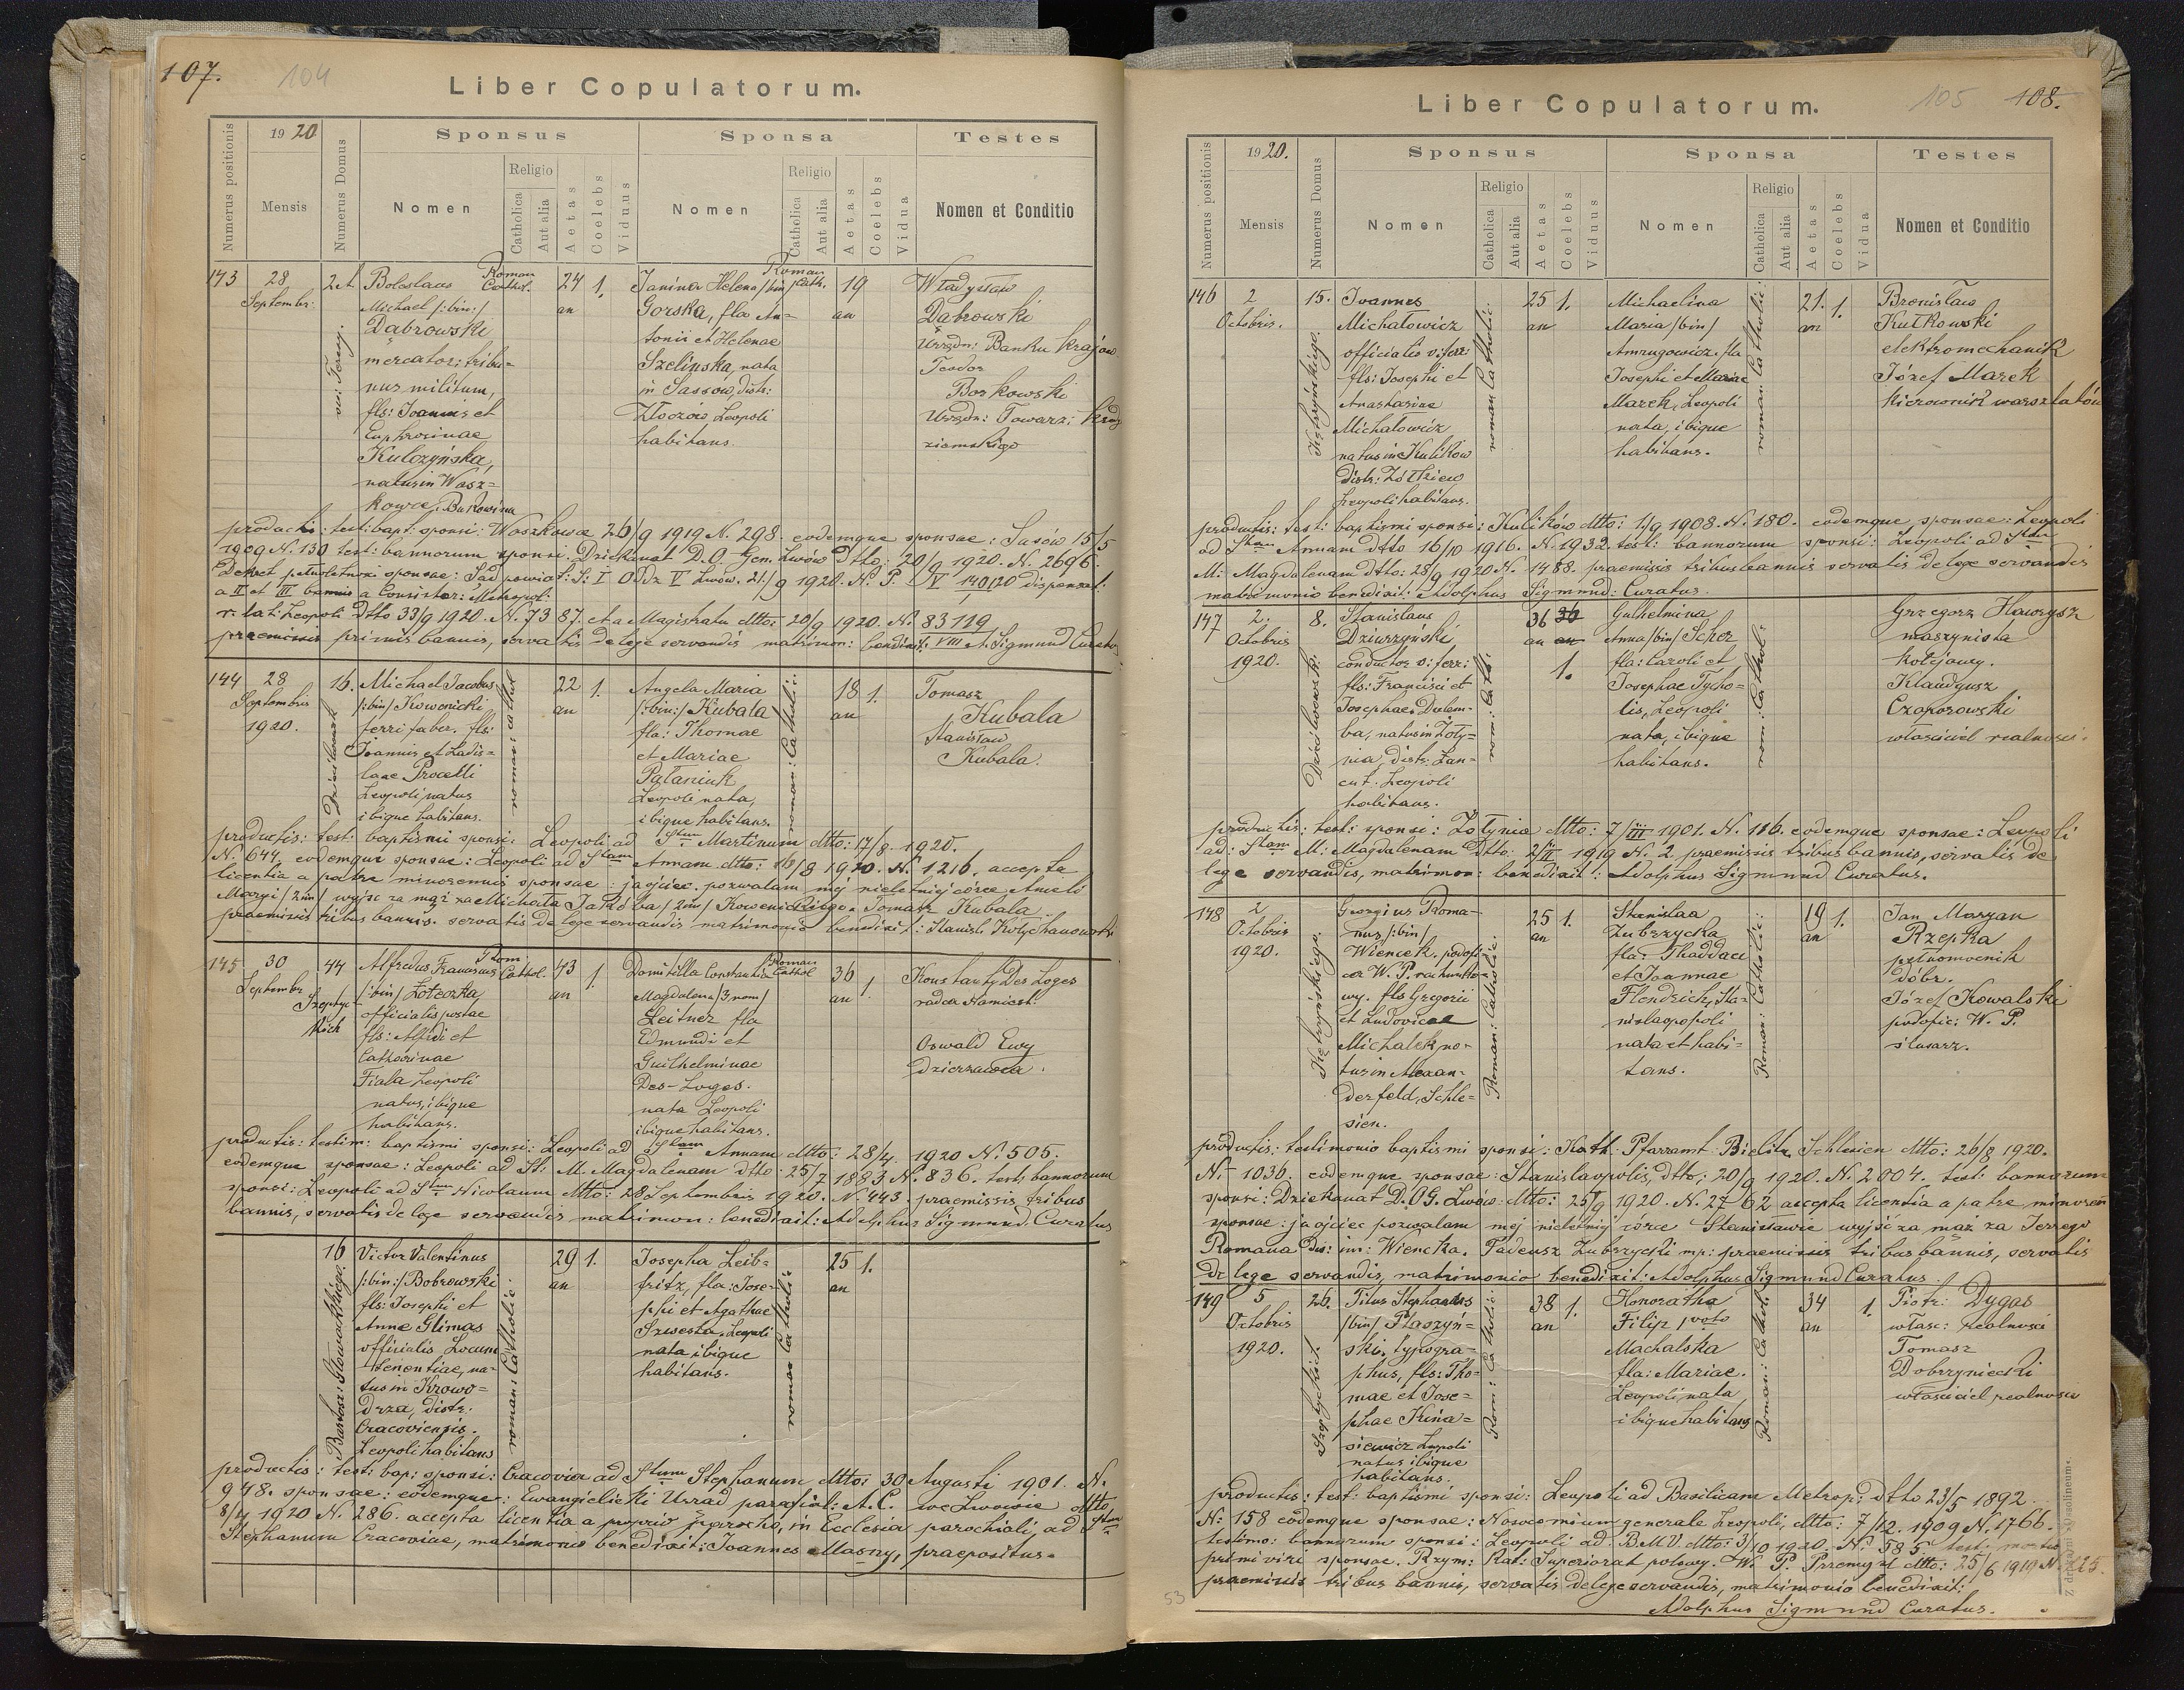 107. 104
Liber Copulatorum.
Numerus positionis
1920
Mensis
Numerus Domus
Sponsus
Nomen
Religio
Catholica
Aut alia
Aetas
Coelebs
Viduus
Sponsa
Nomen
Religio
Catholica
Aut alia
Aetas
Coelebs
Vidua
Testes
Nomen et Conditio
143
28
Septembr:
Boleslaus
Michael /:bin:/
Dąbrowski
mercator; tribu-
nus militum,
fls: Joannis et
Euphrosinae
Kulczyńska,
natus in Wasz-
kowce, Bukowina
Roman
Cathol.
24
an
1.
Janina Helena /bin/
Gorska, fla An-
tonii et Helenae
Szelinska, nata
in Sassow, distr:
Złoczów, Leopoli
habitans.
Roman
Cath.
19
an
Władysław
Dąbrowski
Urzędn: Banku krajow
Teodor
Borkowski
Urzędn: Towarz: kred
ziemskiego
productis: test: bapt: sponsi: Waszkowce 26/9 1919 N. 298. eodemque sponsae: Sasów 15/5
1909 N. 130 test: bannorum sponsi. Dziekanat D.O. Gen. Lwów dtto: 20/9 1920. N. 2696.
Dekret pełnoletności sponsae: Sąd powiat: S. I Odz V Lwów. 21/9 1920. N. P. V 140/20 dispensat:
a II et III bannis a Consistor: Metropol:
r: lat: Leopoli dtto 33/9 1920. N. 7387. et a Magistratu dtto: 20/9 1920. N. 83119
praemissis primis bannis, servatis de lege servandis matrimon: benedixit: VIII A. Sigmund Curatus
144
28
Septembris
1920.
16.
Michael Jacobus
/:bin/ Kowenicki
ferri faber. fls:
Joannis et Ladis-
laae Procelli
Leopoli natus
ibique habitans.
roman: cathol
22
an
1.
Angela Maria
/:bin:/ Kubala
fla: Thomae
et Mariae
Pataniuk,
Leopoli nata,
ibique habitans.
roman: Catholic:
18
an
1.
Tomasz
Kubala
Stanisław
Kubala.
productis: test: baptismi sponsi: Leopoli ad Stum Martinum dtto: 17/8. 1920.
N. 644. eodemque sponsae: Leopoli ad Stam Annam dtto: 16/8 1920. N. 1216. accepta
licentia a patre minorennis sponsae: ja ojciec pozwalam mej nieletniej córce Anieli
Maryi /2im/ wyjść za mąż za Michała Jakóba /2im/ Kowenickiego. Tomasz Kubala.
praemissis tribus bannis. servatis de lege servandis matrimonio benedixit:
145
30
Septembr
44
Szeptyc-
kich
Alfredus Franciscus
/:bin/ Zoteczka
officialis postae
fls: Alfredi et
Catharinae
Fiala Leopoli
natus, ibique
habitans.
Rom
Cathol.
43
an
1.
Domitilla Constantia
Magdalena /3 nom/
Leitner fla
Edmundi et
Guilhelminae
Des-Loges.
nata Leopoli
ibique habitans.
Roman
Cathol
36
an
1.
Konstanty Des Loges
radca Namiest.
Oswald Ewy
Dzierzawca.
productis: testim: baptismi sponsi: Leopoli ad Stam Annam dtto: 28/4. 1920 N. 505.
eodemque sponsae: Leopoli ad St. M. Magdalenam dtto: 25/7 1883 N. 836. test: bannorum
sponsi: Leopoli ad Stum Nicolaum dtto: 28 Septembris 1920. N. 443. praemissis tribus
bannis, servatis de lege servandis matrimon: benedixit: Adolphus Sigmund. Curatus
16
Bartosza: Głowackiego.
Victor Valentinus
/:bin:/ Bobrowski
fls: Josephi et
Anne Glimas
officialis Locum
tenentiae, na-
tus in Krowo-
drza, distr.
Cracoviensis.
Leopoli habitans
roman: Catholic.
29
an
1.
Josepha Leib-
fritz, fla: Jose-
phi et Agathae
Szwesta, Leopoli
nata ibique
habitans.
roman Catholic
25
an
1.
productis: test: bap: sponsi: Cracovia ad Stum Stephanum dtto: 30 Augusti 1901. N.
948. sponsae: eodemque: Ewangielicki Urząd parafial: A.C. we Lwowie dtto
8/4 1920 N. 286. accepta licentia a proprio parocho, in Ecclesia parochiali, ad Stum
Stephanum Cracoviae, matrimonio benedixit: Joannes Masny, praepositus.
105 108.
Liber Copulatorum.
Numerus positionis
1920.
Mensis
Numerus Domus
Sponsus
Nomen
Religio
Catholica
Aut alia
Aetas
Coelebs
Viduus
Sponsa
Nomen
Religio
Catholica
Aut alia
Aetas
Coelebs
Vidua
Testes
Nomen et Conditio
146
2
Octobris.
15.
Kętrzyńskiego.
Joannes
Michałowicz
officialis v: ferr:
fls: Josephi et
Anastasiae
Michałowicz
natus in Kulikow
distr: Żółkiew
Leopoli habitans.
roman Catholic:
25
an
1.
Michaelina
Maria /bin/
Amrugowicz. fla
Josephi et Mariae
Marek, Leopoli
nata, ibique
habitans.
roman Catholic:
21.
an
1.
Bronisław
Kutkowski
elektromechanik
Józef Marek
kierownik warsztatów
productis: test: baptismi sponsi: Kulików dtto: 1/9 1908. N. 180. eodemque sponsae: Leopoli
ad Stam Annam dtto 16/10 1916. N. 1932. test: bannorum sponsi: Leopoli ad Stam
M: Magdalenam dtto: 28/9 1920 N. 1488. praemissis tribus bannis servatis de lege servandis
matrimonio benedixit: Adolphus Sigmund: Curatus.
147
2.
Octobris
1920.
8.
Stanislaus
Dziurzyński
conductor v: ferr:
fls: Francisci et
Josephae Dulem-
ba, natus in Żoły-
nia, distr: Łan-
cut. Leopoli
habitans.
rom: Cath:
36 36
an an
1.
Gulhelmina
Anna /bin/ Scher
fla: Caroli et
Josephae Tycho-
lis, Leopoli
nata, ibique
habitans.
rom: Cathol:
Grzegorz Hawrysz
maszynista
kolejowy.
Klaudyusz
Czaporowski
właściciel realności.
productis: test: sponsi: Żołynia dtto: 7/III 1901. N. 116. eodemque sponsae: Leopoli
ad: Stam M: Magdalenam dtto: 2/II 1919 N. 2. praemissis tribus bannis, servatis de
lege servandis, matrimon: benedixit: Adolphus Sigmund Curatus.
148
2
Octobris
1920.
Kętrzyńskiego.
Georgius Roma-
nus /:bin/
Wiencek. podofi-
cer W. P. rachunko-
wy. fls Gregorii
et Ludovicae
Michalek, na-
tus in Alexan-
derfeld, Schle-
sien.
Roman: Catholic:
25
an
1.
Stanislaa
Zubrzycka
fla: Thaddaei
et Joannae
Flendrich, Sta-
nislaopopoli
nata et habi-
tans.
Roman: Catholic:
19
an
1.
Jan Maryan
Rzepka
pełnomocnik
dóbr.
Józef Kowalski
podofic: W. P.
slusarz.
productis: testimonio baptismi sponsi: Kath: Pfarramt: Bielitz, Schlesien dtto: 26/8 1920.
N. 1036. eodemque sponsae: Stanislaopolis, dtto: 20/9 1920. N. 2004. test: bannorum
sponsi: Dziekanat D.OG. Lwów dtto: 25/9 1920. N. 2762 accepta licentia a patre minoren
sponsae: ja ojciec pozwalam mej nieletniej córce Stanisławie wyjść za mąż za Jerzego
Romana dw: im: Wiencka. Tadeusz Zubrzycki mp: praemissis tribus bannis, servatis
de lege servandis, matrimonio benedixit: Adolphus Sigmund Curatus.
149
5
Octobris
1920.
26.
Szeptyckich.
Titus Stephanus
/bin/ Ptaszyń-
ski, typogra-
phus, fls: Tho-
mae et Jose-
phae Kinia-
siewicz Leopoli
natus ibique
habitans.
Rom: Catholic:
38
an
1.
Honoratha
Filip 1 voto
Machalska
fla: Mariae.
Leopoli nata
ibique habitans
Roman: Cathol:
34
an
1.
Piotr: Dygas
własc: realnosci
Tomasz
Dobrzyniecki
właściciel realnosci
productis: test: baptismi sponsi: Leopoli ad Basilicam Metrop: dtto 23/5 1892.
N: 158 eodemque sponsae: Nosocomium generale Leopoli, dtto: 7/12. 1909 N. 1766.
testimo: bannorum sponsi: Leopoli ad: B.M.V. dtto: 3/10 1920. N. 585. test: mortis
primi viri sponsae. Rzym: Kat: Superiorat polowy. W. P. Przemyśl dtto: 25/6 1919 N. 225.
praemissis tribus bannis, servatis de lege servandis, matrimonio benedixit:
Adolphus Sigmund Curatus.
53